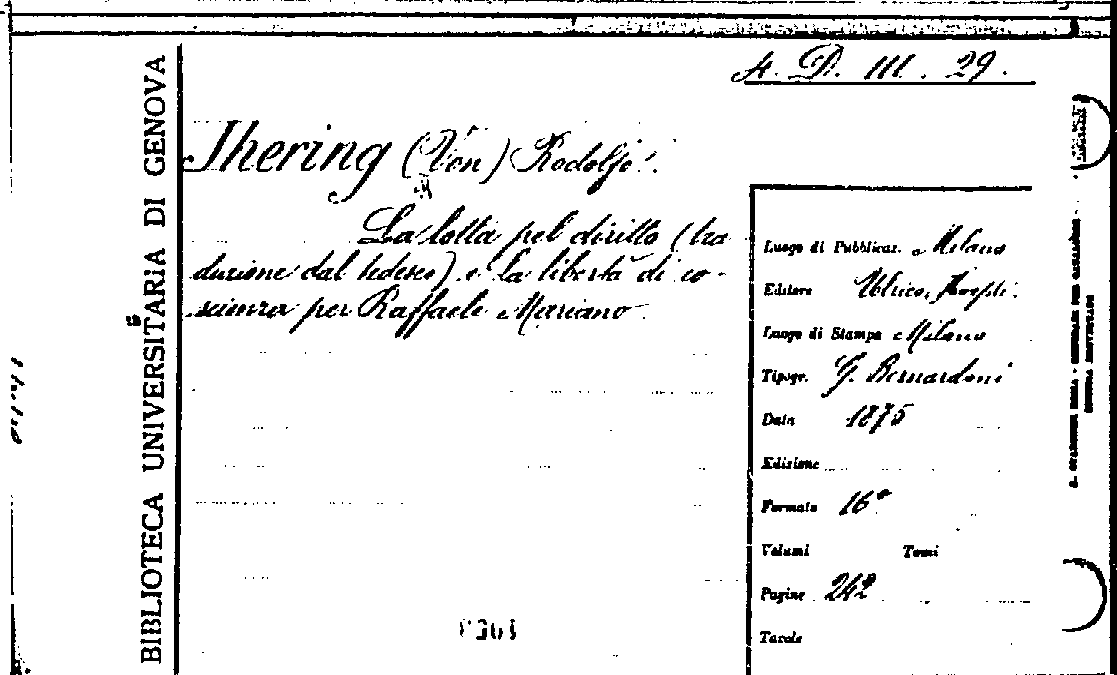 4. D. III. 29.
BIBLIOTECA UNIVERSITARIA DI GENOVA
Jhering (Von) Rodolfo.
La lotta pel diritto (tra
duzione dal tedesco) e la libertà di co-
scienza per Raffaele Mariano.
Luogo di Pubblicaz. Milano
Editore Ulrico Hoepli.
Luogo di Stampa Milano
Tipogr. G. Bernardoni
Data 1875
Edizione
Formato 16°
Volumi Tomi
Pagine 242
Tavole